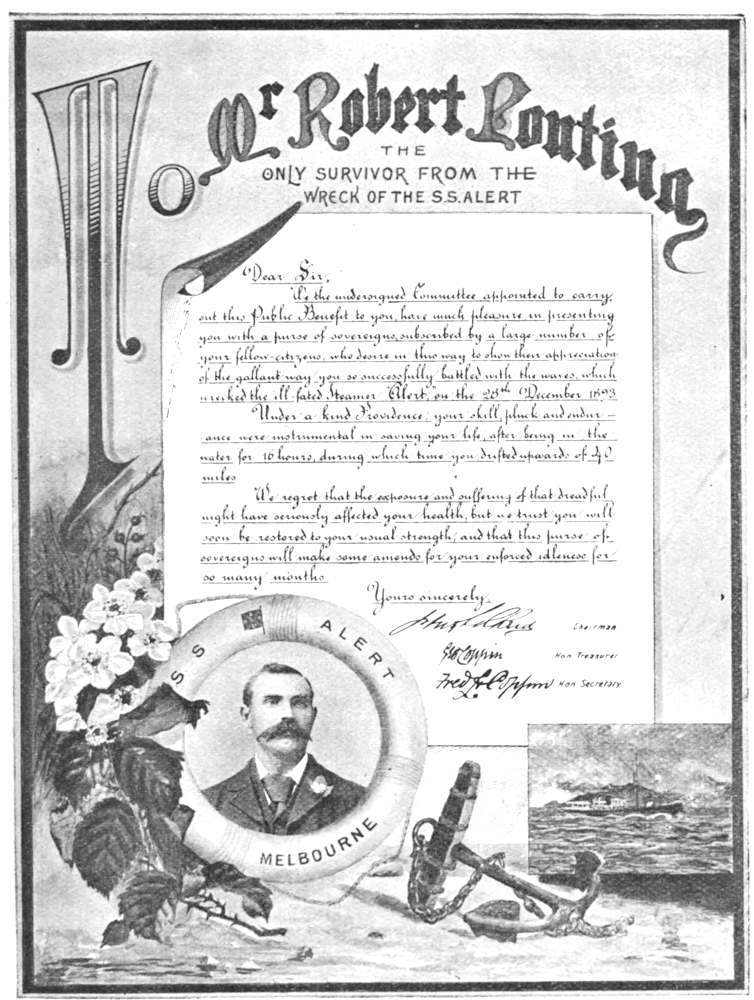 To Mr Robert Ponting
THE
ONLY SURVIVOR FROM THE
WRECK OF THE S.S. ALERT
Dear Sir,
We the undersigned Committee appointed to carry
out this Public Benefit to you, have much pleasure in presenting
you with a purse of sovereigns, subscribed by a large number of
your fellow-citizens, who desire in this way to show their appreciation
of the gallant way you so successfully battled with the waves, which
wrecked the ill-fated Steamer "Alert," on the 28th December 1893
Under a kind Providence, your skill, pluck and endur-
ance were instrumental in saving your life, after being in the
water for 16 hours, during which time you drifted upwards of 40
miles
We regret that the exposure and suffering of that dreadful
night have seriously affected your health, but we trust you will
soon be restored to your usual strength, and that this purse of
sovereigns will make some amends for your enforced idleness for
so many months
Yours sincerely,
Chairman
Geo Coppin Hon Treasurer
Fred Coppin Hon Secretary
S S ALERT
MELBOURNE